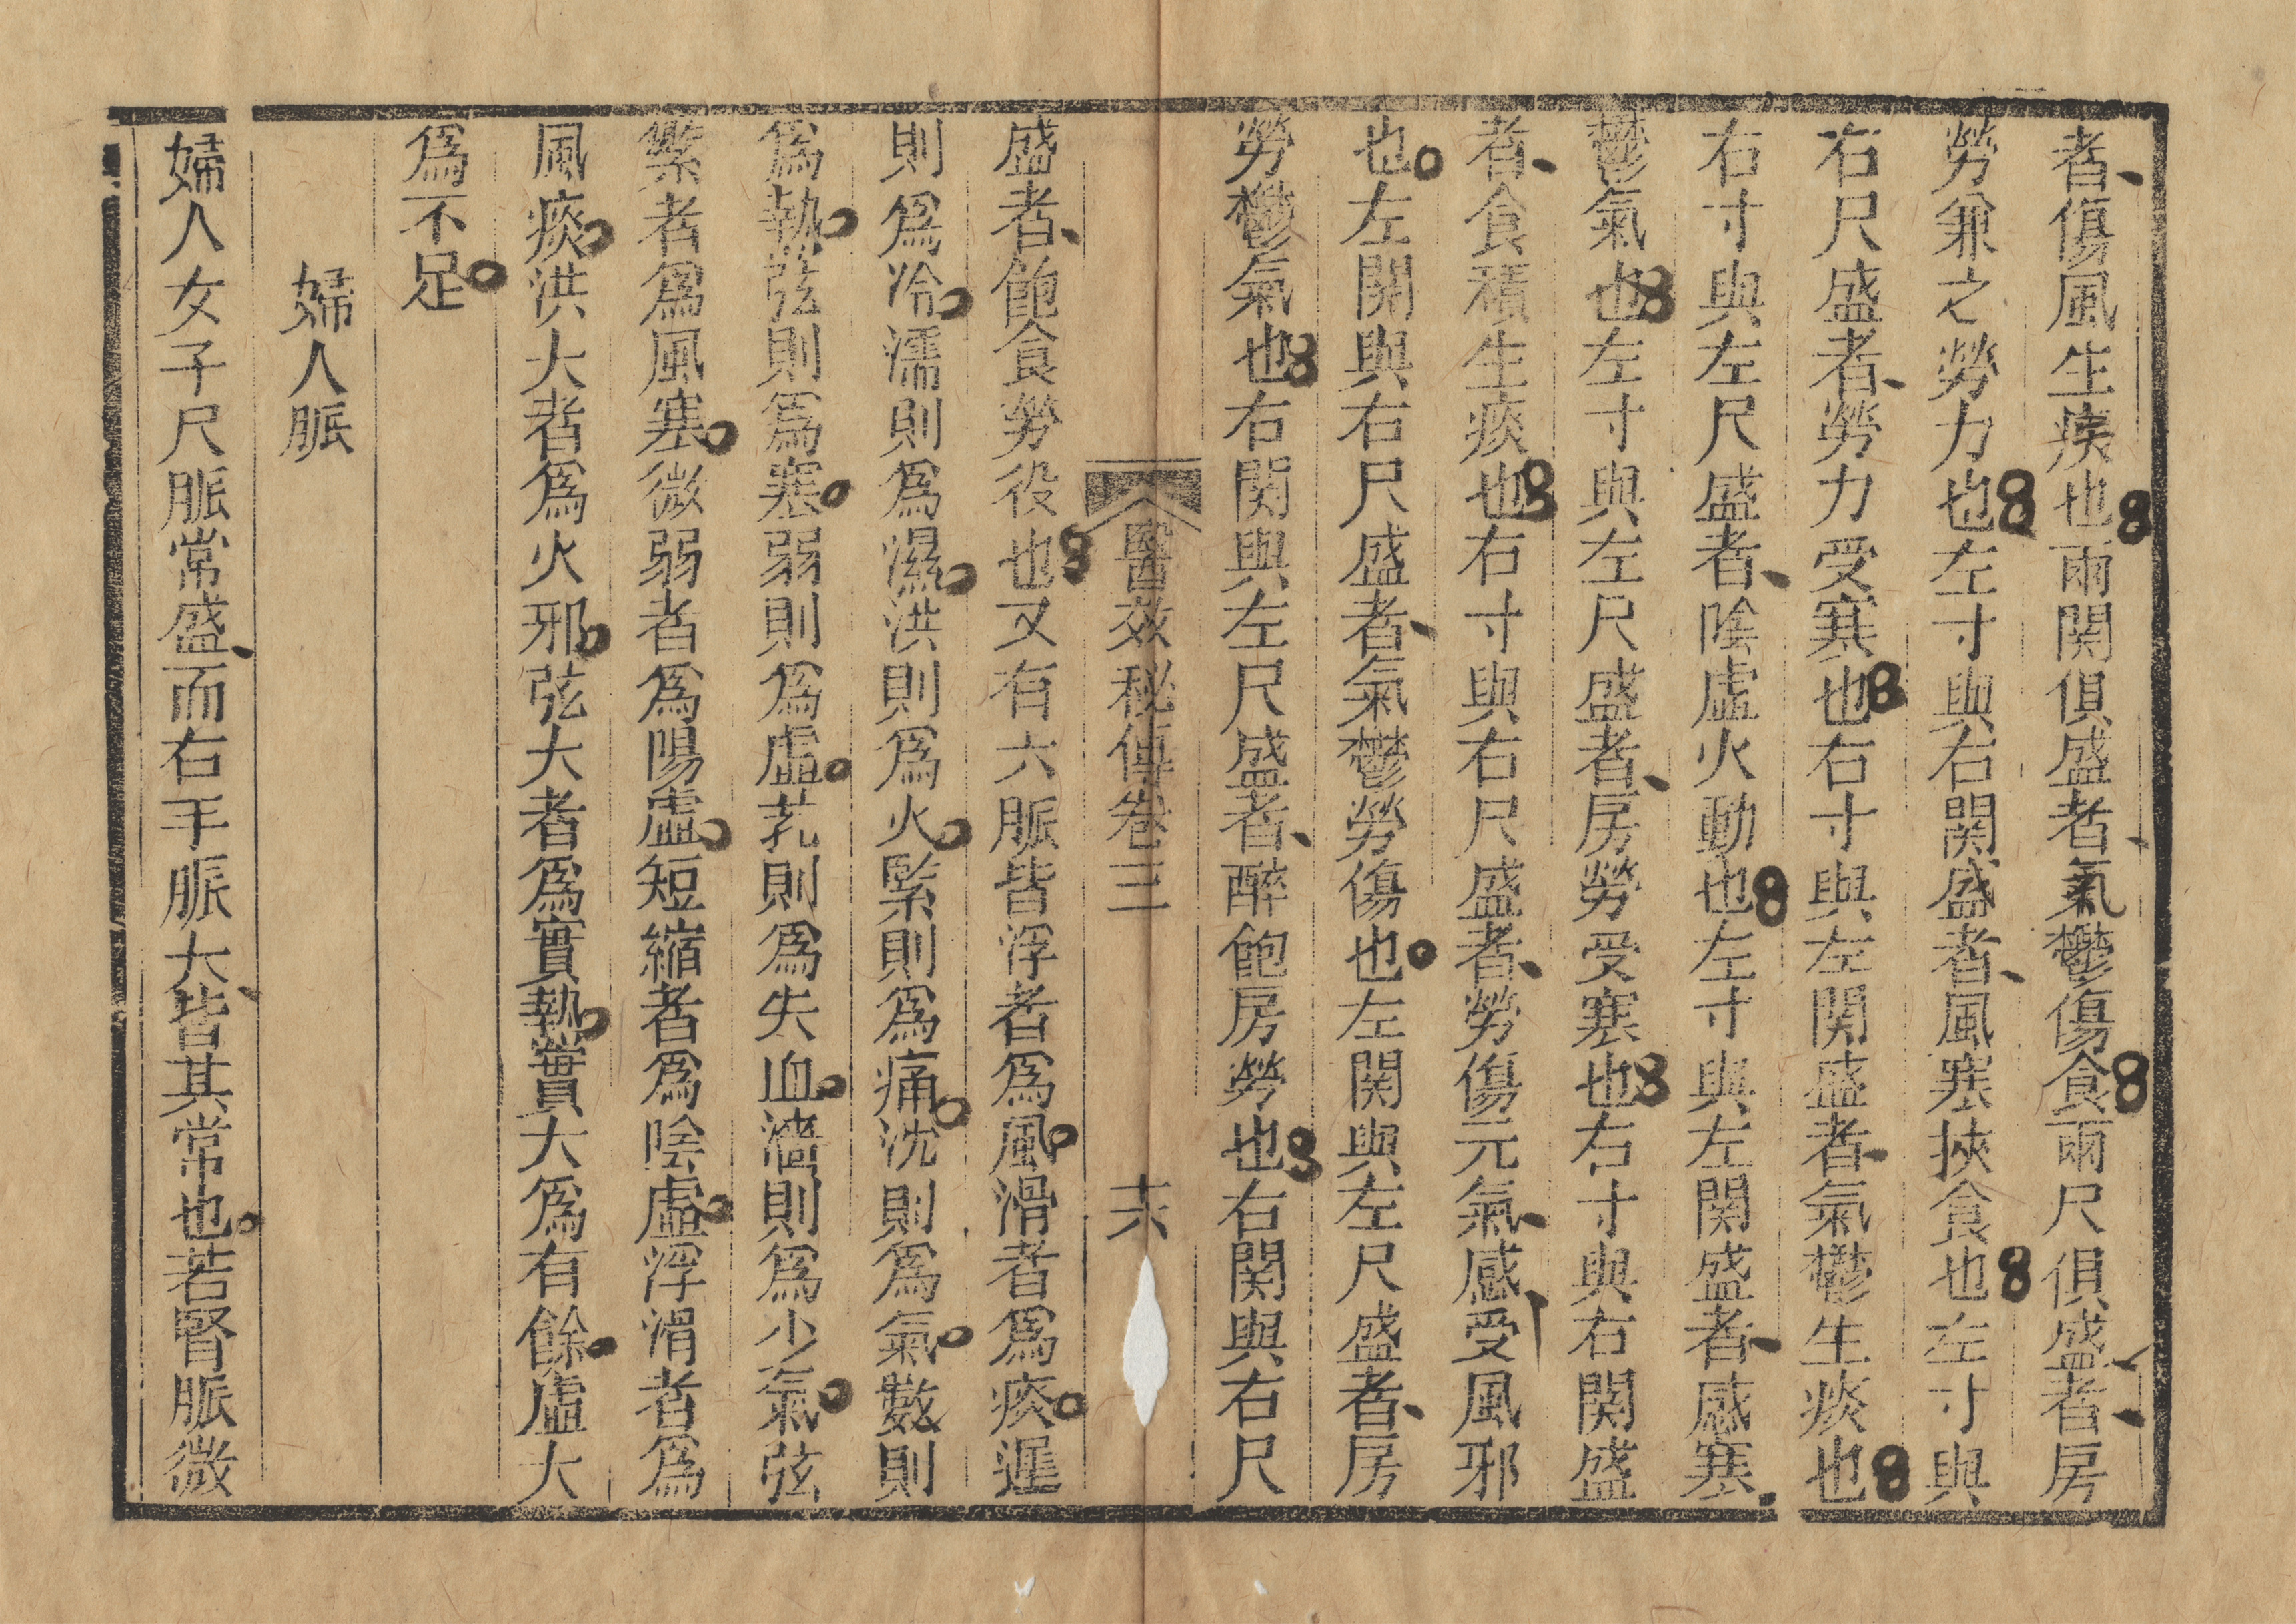 者傷風生痰也兩関俱盛者氣鬱傷食兩尺俱盛者房
勞兼之勞力也左寸與右関盛者風塞挾食也左寸與
右尺盛者勞力受寒也右寸與左関盛者氣鬱生痰也
右寸與左尺盛者陰虛火動也左寸與左関盛者感塞
鬱氣也左寸與左尺盛者房勞受塞也右寸與右関盛
者食積生痰也右寸與右尺盛者勞傷元氣感受風邪
也左関與右尺盛者氣鬱勞傷也左関與左尺盛者房
勞鬱氣也右関與左尺盛者醉飽房勞也右関與右尺
醫效秘傳卷三 十六
盛者飽食勞役也又有六脈皆浮者爲風滑者爲痰遲
則爲冷濡則爲濕洪則爲火緊則爲痛沈則爲氣數則
爲執弦則爲塞弱則爲虛芤則爲失血濇則爲少氣弦
緊者爲風塞微弱者爲陽虛短縮者爲陰虛浮滑者爲
風痰洪大者爲火邪弦大者爲實執實大爲有餘虛大
爲不足
婦人脈
婦人女子尺脈常盛而右手脈大皆其常也若腎脈微